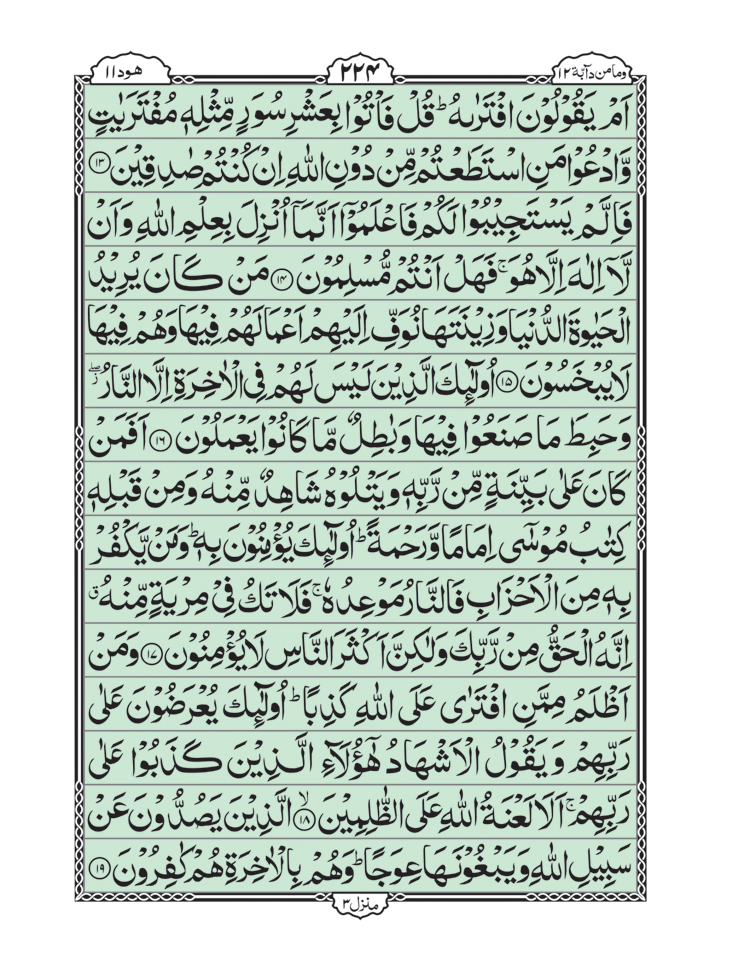 ومامن دآبة ۱۲
۲۲۴
هود ۱۱
اَمۡ يَقُوۡلُوۡنَ افۡتَرٰٮهُ‌ ؕ قُلۡ فَاۡتُوۡا بِعَشۡرِ سُوَرٍ مِّثۡلِهٖ مُفۡتَرَيٰتٍ
وَّادۡعُوۡا مَنِ اسۡتَطَعۡتُمۡ مِّنۡ دُوۡنِ اللّٰهِ اِنۡ كُنۡتُمۡ صٰدِقِيۡنَ ﴿۱۳﴾
فَاِلَّمۡ يَسۡتَجِيۡبُوۡا لَكُمۡ فَاعۡلَمُوۡۤا اَنَّمَاۤ اُنۡزِلَ بِعِلۡمِ اللّٰهِ وَاَنۡ
لَّاۤ اِلٰهَ اِلَّا هُوَ‌ ۚ فَهَلۡ اَنۡتُمۡ مُّسۡلِمُوۡنَ ﴿۱۴﴾ مَنۡ كَانَ يُرِيۡدُ
الۡحَيٰوةَ الدُّنۡيَا وَ زِيۡنَتَهَا نُوَفِّ اِلَيۡهِمۡ اَعۡمَالَهُمۡ فِيۡهَا وَهُمۡ فِيۡهَا
لَا يُبۡخَسُوۡنَ ﴿۱۵﴾ اُولٰٓٮِٕكَ الَّذِيۡنَ لَيۡسَ لَهُمۡ فِى الۡاٰخِرَةِ اِلَّا النَّارُ ‌ۖ ز
وَحَبِطَ مَا صَنَعُوۡا فِيۡهَا وَبٰطِلٌ مَّا كَانُوۡا يَعۡمَلُوۡنَ ﴿۱۶﴾ اَفَمَنۡ
كَانَ عَلٰى بَيِّنَةٍ مِّنۡ رَّبِّهٖ وَيَتۡلُوۡهُ شَاهِدٌ مِّنۡهُ وَمِنۡ قَبۡلِهٖ
كِتٰبُ مُوۡسٰٓى اِمَامًا وَّرَحۡمَةً‌ ؕ اُولٰٓٮِٕكَ يُؤۡمِنُوۡنَ بِهٖ‌ ؕ وَمَنۡ يَّكۡفُرۡ
بِهٖ مِنَ الۡاَحۡزَابِ فَالنَّارُ مَوۡعِدُهٗ‌ ۚ فَلَا تَكُ فِىۡ مِرۡيَةٍ مِّنۡهُ‌ ق
اِنَّهُ الۡحَقُّ مِنۡ رَّبِّكَ وَلٰـكِنَّ اَكۡثَرَ النَّاسِ لَا يُؤۡمِنُوۡنَ ﴿۱۷﴾ وَمَنۡ
اَظۡلَمُ مِمَّنِ افۡتَرٰى عَلَى اللّٰهِ كَذِبًا‌ ؕ اُولٰٓٮِٕكَ يُعۡرَضُوۡنَ عَلٰى
رَبِّهِمۡ وَ يَقُوۡلُ الۡاَشۡهَادُ هٰٓؤُلَاۤءِ الَّذِيۡنَ كَذَبُوۡا عَلٰى
رَبِّهِمۡ‌ ۚ اَلَا لَعۡنَةُ اللّٰهِ عَلَى الظّٰلِمِيۡنَۙ ﴿۱۸﴾ الَّذِيۡنَ يَصُدُّوۡنَ عَنۡ
سَبِيۡلِ اللّٰهِ وَيَبۡغُوۡنَهَا عِوَجًا ؕ وَهُمۡ بِالۡاٰخِرَةِ هُمۡ كٰفِرُوۡنَ ﴿۱۹﴾
منزل ۳